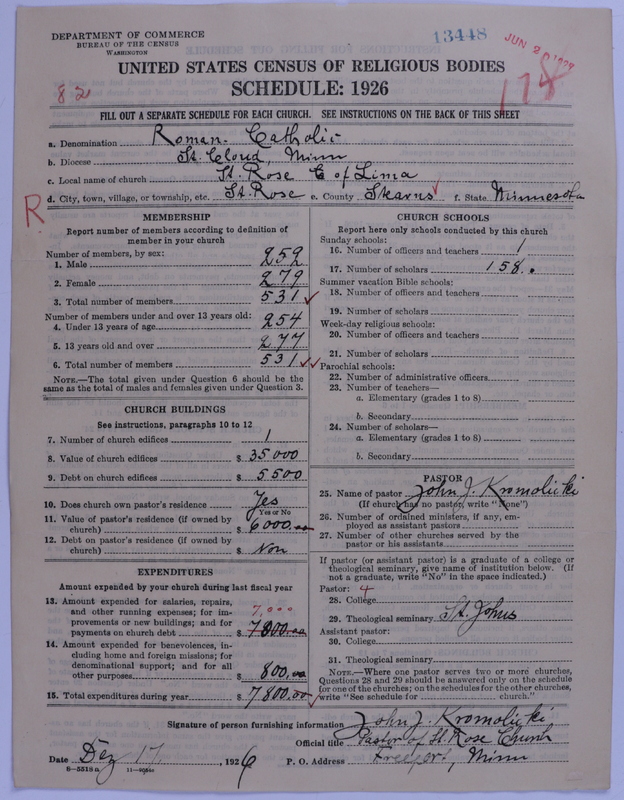 DEPARTMENT OF COMMERCE
BUREAU OF THE CENSUS
WASHINGTON
13448
JUN 20 1927
UNITED STATES CENSUS OF RELIGIOUS BODIES
SCHEDULE: 1926
82
178
FILL OUT A SEPARATE SCHEDULE FOR EACH CHURCH. SEE INSTRUCTIONS ON THE BACK OF THIS SHEET
a. Denomination Roman Catholic
b. Diocese St. Cloud, Minn
c. Local name of church St. Rose C of Lima
R
d. City, town, village, or township, etc. St. Rose e. County Stearns f. State Minnesota
MEMBERSHIP
Report number of members according to definition of
member in your church
Number of members, by sex:
1. Male 252
2. Female 279
3. Total number of members 531
Number of members under and over 13 years old:
4. Under 13 years of age 254
5. 13 years old and over 277
6. Total number of members 531
NOTE.—The total given under Question 6 should be the
same as the total of males and females given under Question 3.
CHURCH BUILDINGS
See instructions, paragraphs 10 to 12
7. Number of church edifices 1
8. Value of church edifices $ 35000
9. Debt on church edifices $ 5500
10. Does church own pastor's residence? Yes
Yes or No
11. Value of pastor's residence (if owned by
church) $ 6000.00
12. Debt on pastor's residence (if owned by
church) $ Non
EXPENDITURES
Amount expended by your church during last fiscal year
13. Amount expended for salaries, repairs,
and other running expenses; for im-
provements or new buildings; and for 7,000
payments on church debt $ 7800.00
14. Amount expended for benevolences, in-
cluding home and foreign missions; for
denominational support; and for all
other purposes $ 800.00
15. Total expenditures during year $ 7800.00
CHURCH SCHOOLS
Report here only schools conducted by this church
Sunday schools:
16. Number of officers and teachers 1
17. Number of scholars 158.
Summer vacation Bible schools:
18. Number of officers and teachers
19. Number of scholars
Week-day religious schools:
20. Number of officers and teachers
21. Number of scholars
Parochial schools:
22. Number of administrative officers
23. Number of teachers—
a. Elementary (grades 1 to 8)
b. Secondary
24. Number of scholars—
a. Elementary (grades 1 to 8)
b. Secondary
PASTOR
25. Name of pastor John J. Kromolicki
(If church has no pastor, write "None")
26. Number of ordained ministers, if any, em-
ployed as assistant pastors
27. Number of other churches served by the
pastor or his assistants
If pastor (or assistant pastor) is a graduate of a college or
theological seminary, give name of institution below. (If
not a graduate, write "No" in the space indicated.)
Pastor: 4
28. College
29. Theological seminary St. Johns
Assistant pastor:
30. College
31. Theological seminary
NOTE.—Where one pastor serves two or more churches,
Questions 28 and 29 should be answered only on the schedule
for one of the churches; on the schedules for the other churches,
write "See schedule for church."
Signature of person furnishing information John J. Kromolicki
Official title Pastor of St. Rose Church
Date Dez 17, 1926 P. O. Address Freeport, Minn